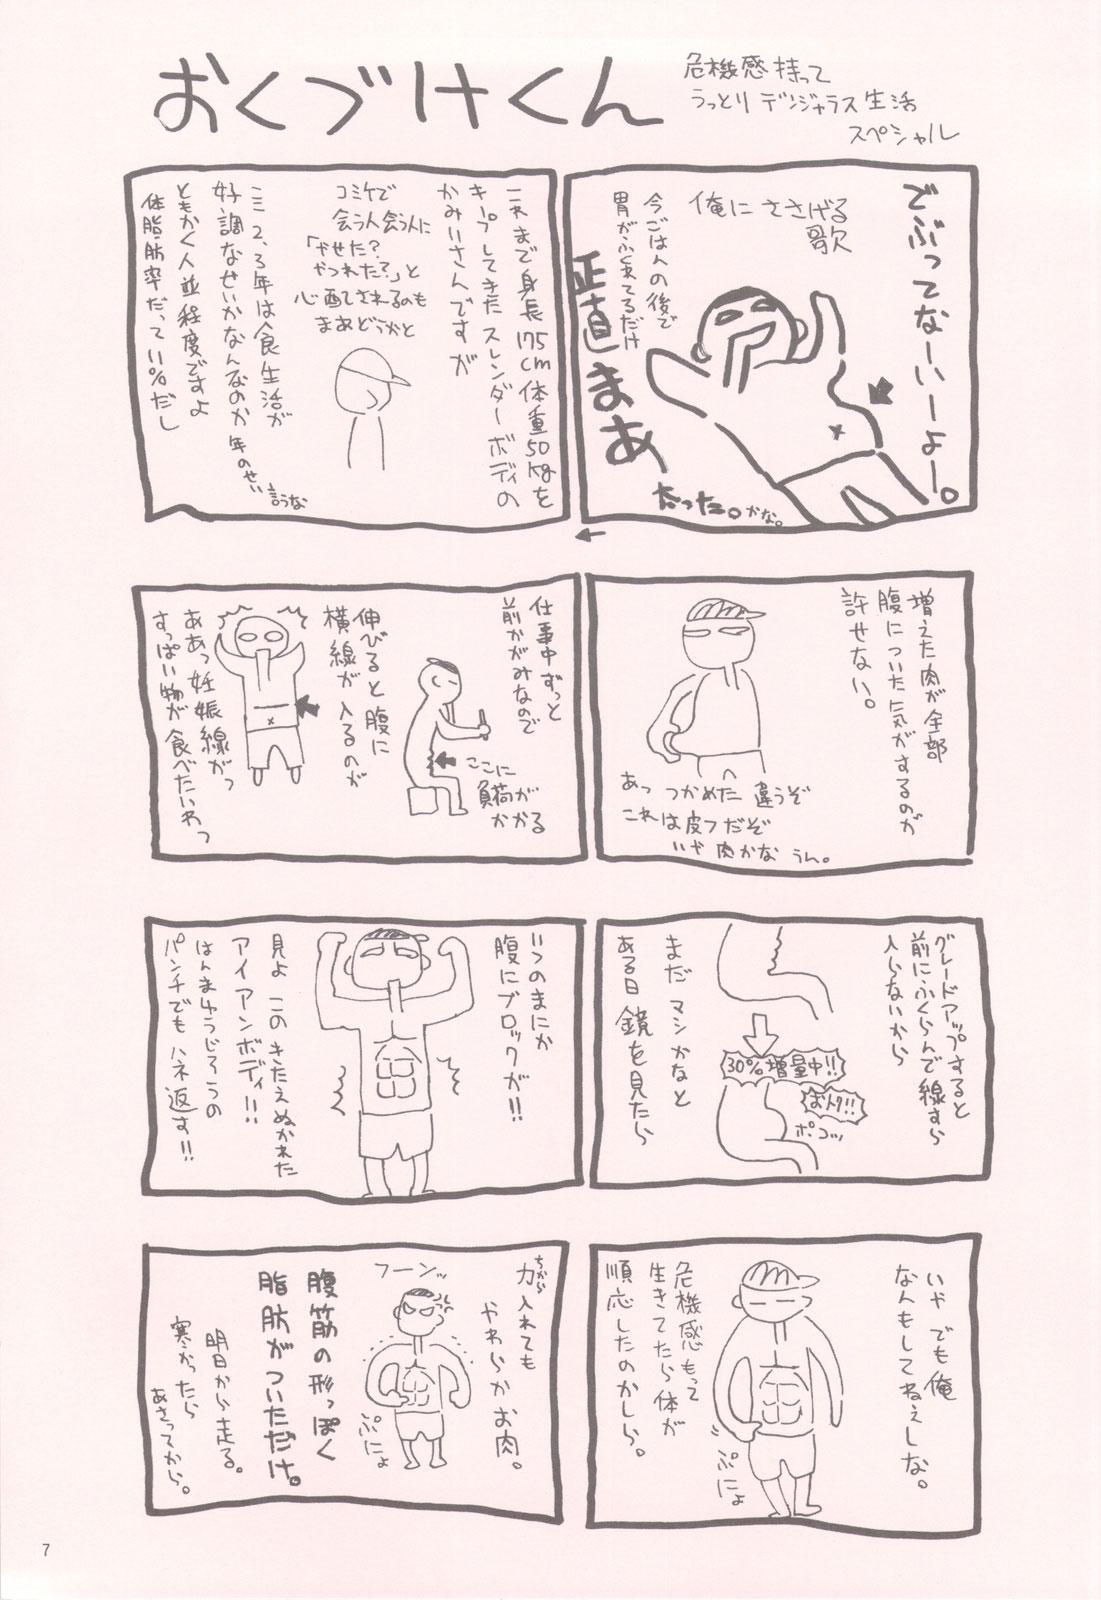 おくづけくん
危機感持って
うっとりデンジャラス生活
スペシャル
でぶってなーいーよー。
俺にささげる
歌
今ごはんの後で
胃がふくれてるだけ
正直まあ
太った。かな。
これまで身長175cm体重50kgを
キープしてきたスレンダーボディの
かみいさんですが
コミケで
会う人会う人に
「やせた?
やつれた?」と
心配されるのも
まあどうかと
ここ2、3年は食生活が
好調なせいかなんなのか年のせい
言うな
ともかく人並程度ですよ
体脂肪率だって11%だし
増えた肉が全部
腹についた気がするのが
許せない。
あっつかめた違うぞ
これは皮フだぞ
いや肉かなうん。
仕事中ずっと
前かがみなので
ここに
負荷が
かかる
伸びると腹に
横線が入るのが
ああっ妊娠線がっ
すっぱい物が食べたいわっ
グレードアップすると
前にふくらんで線すら
入らないから
30%増量中!!
おトク!!
ポコッ
まだマシかなと
ある日鏡を見たら
いつのまにか
腹にブロックが!!
見よこのきたえぬかれた
アイアンボディ!!
はんまゆうじろうの
パンチでもハネ返す!!
いやでも俺
なんもしてねぇしな。
ぷにょ
危機感もって
生きてたら体が
順応したのかしら。
力入れても
ちから
やわらかお肉。
フーンッ
ぷにょ
腹筋の形っぽく
脂肪がついただけ。
明日から走る。
寒かったら
あさってから。
7